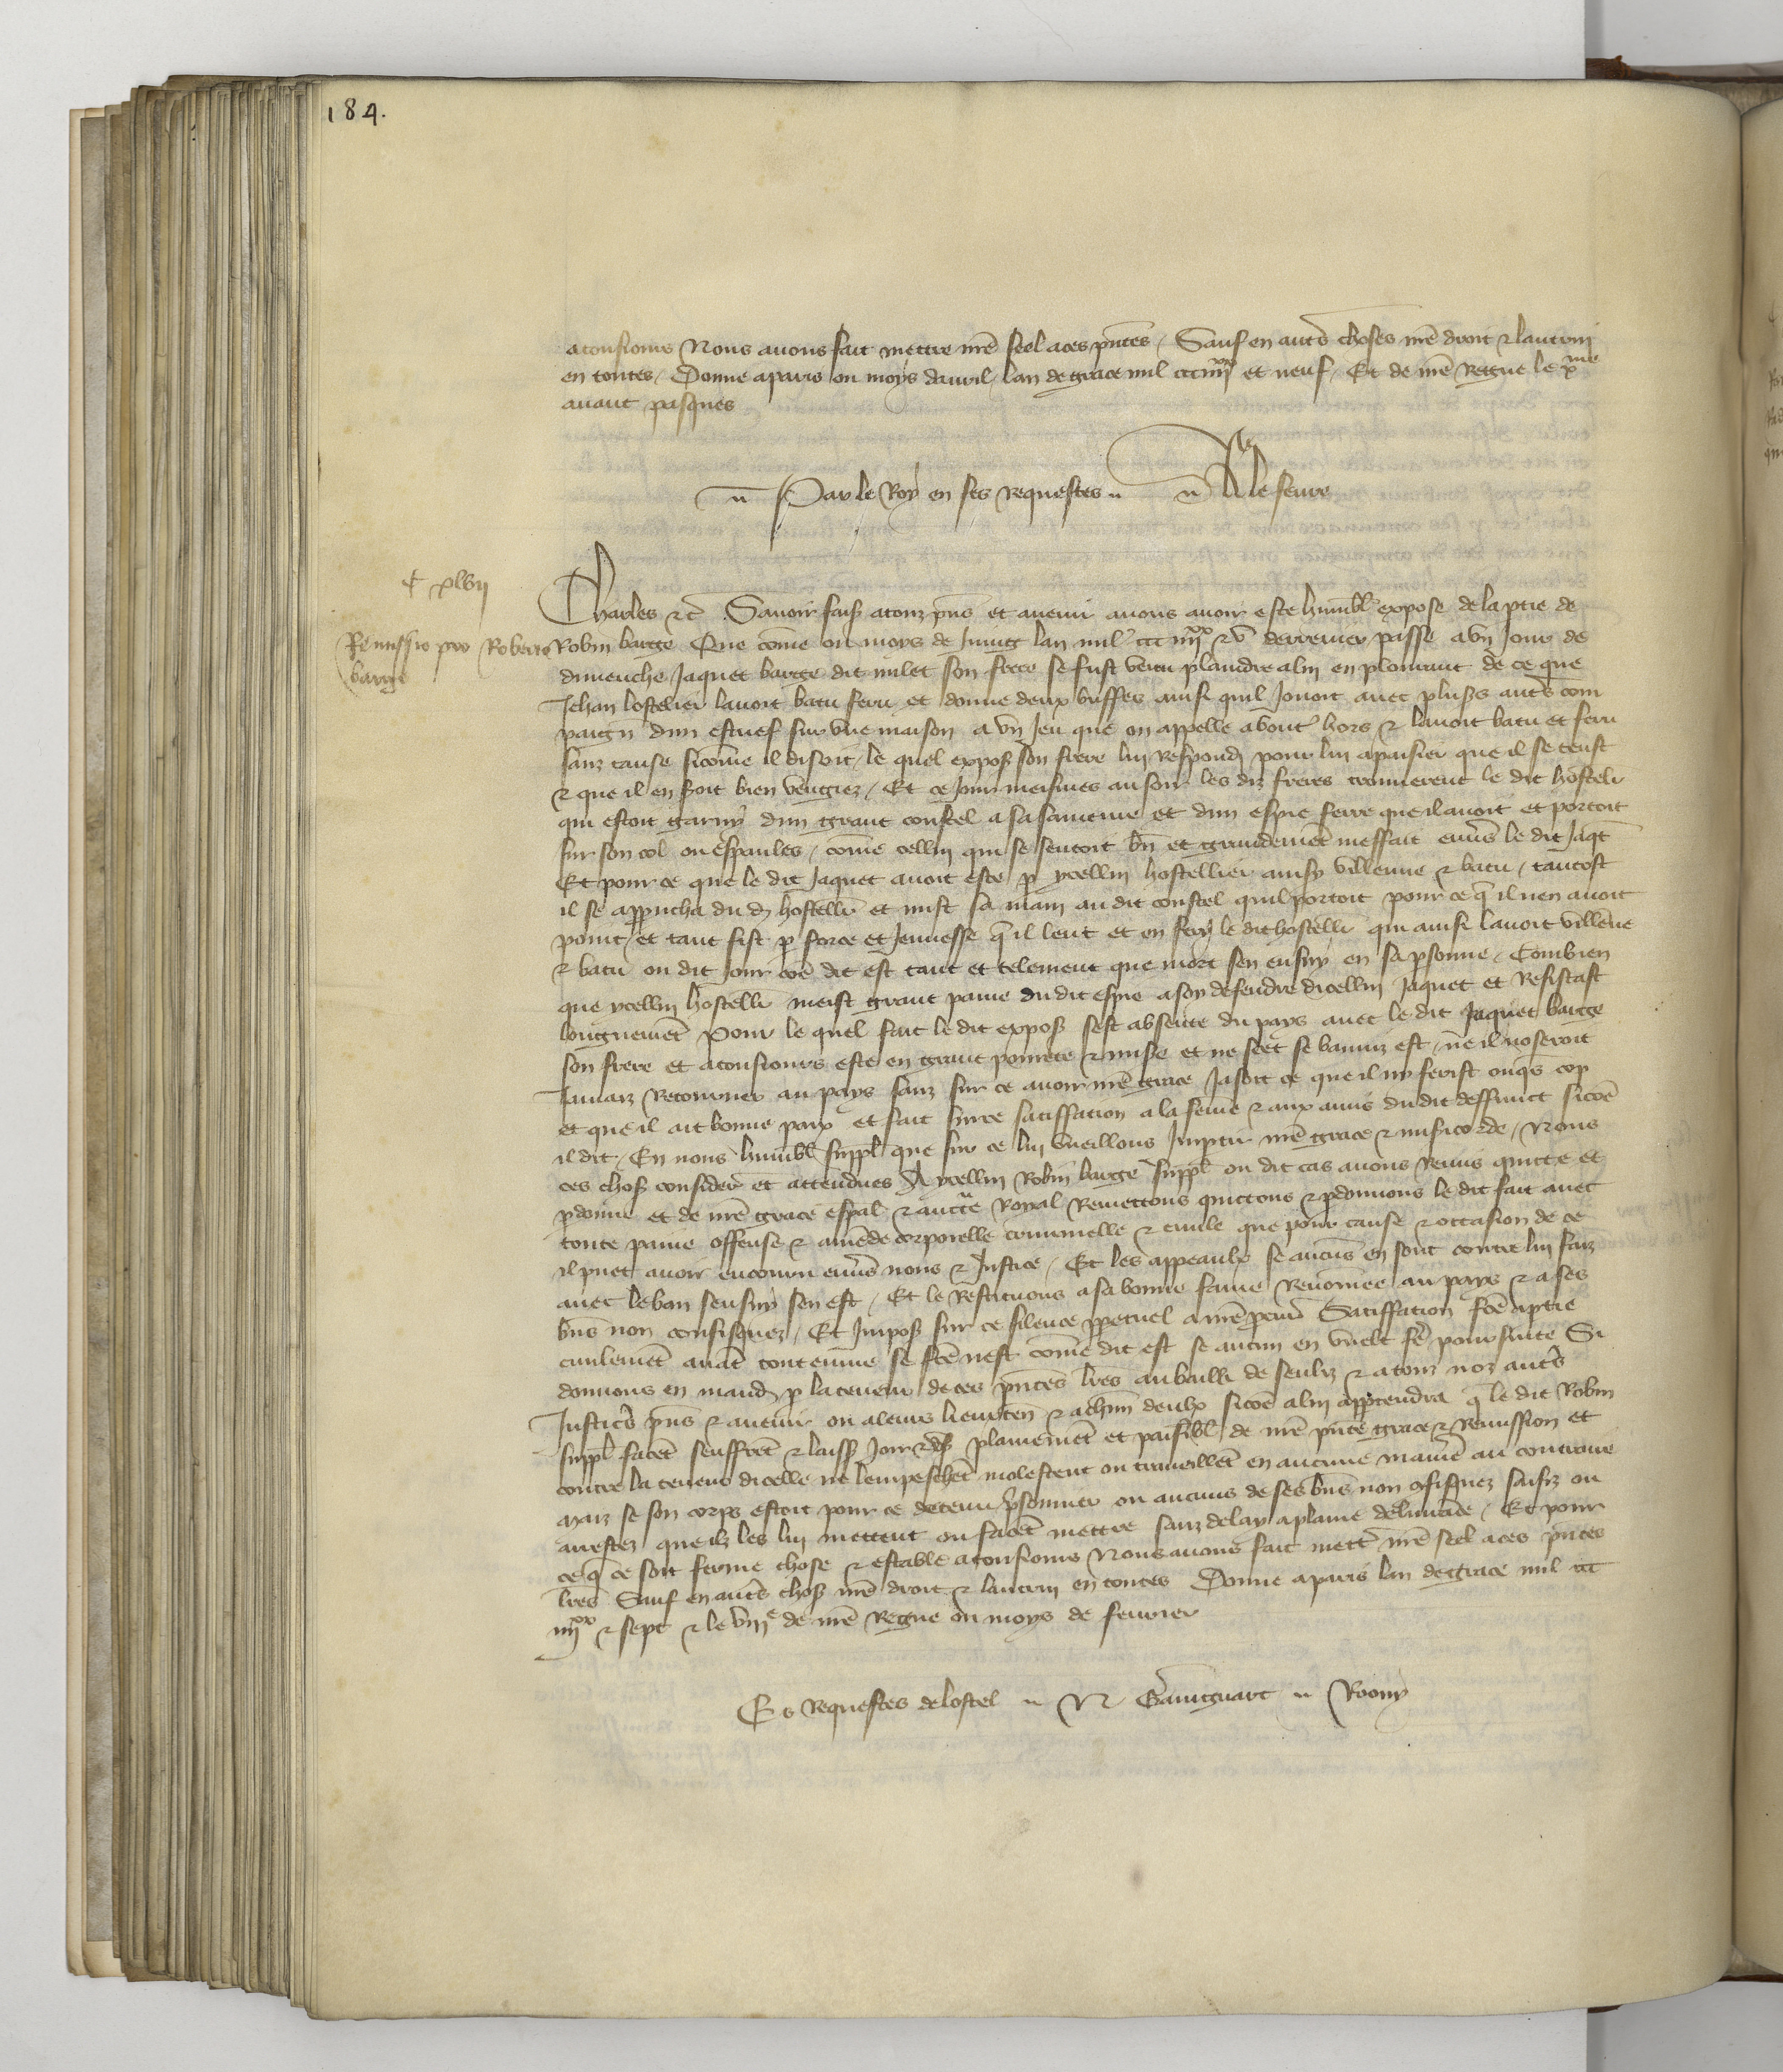 184.
atousiours Nous auons fait mettre nr̄e seel aces pn̄tes / Sauf en autr̄s choses nr̄e droit & lautruy
en toutes / Donne aparis ou moys dauril / lan de grace mil ccciiijxx et neuf / Et de nr̄e Regne le xme
auant pasques
Par le Roy en ses requestes .. lefeure
C xlvij
Remissio pro Roberto
barge
Charles &c Sauoir faiss atouz pn̄s et auenir anous auoir este humbl expose dela ptie de
Robin barge Que com̄e ou moys de Juing lan mil ccc iiijxx & v derrenier passe a vn Jour de
dimenche Jaquet barge dit milet son frere se fust venu plaindre a lui en plourant de ce que
Jehan lostelier lauoit batu feru et donne deux buffes ainsi quil Jouoit auec plusrs autr̄s com
paign̄ dun estuef sur vne maison a vn Jeu que on appelle abouter hors & lauoit batu et feru
sanz cause sicom̄e il disoit / le quel exposs son frere lui Respondj pour lui apaisier que il se teust
& que il en seroit bien vengiez / Et ce Jour meismes au soir les diz freres trouuerent le dit hostelr
qui estoit garny dun grant coustel a sa sainture et dun espie ferre que il auoit et portoit
sur son col ou espaules / com̄e cellui qui se sentoit bn̄ et grandemēt meffait enuers le dit Jaqt
Et pour ce que le dit Jaquet auoit este p ycellui hostellier ainsy villenne & batu / tantost
il se approucha du d hostellr et mist sa main au dit coustel quil portoit pour ce q̄ il nen auoit
point / et tant fist p force et Jeunesse q̄ il leut et en fery le dit hostellr qui ainsi lauoit villene
& batu ou dit Jour cōe dit est tant et telement que mort sen ensuy en sa psonne / Combien
que ycellui hostellr meist grant paine du dit espie a soy defendre dicellui Jaquet et Resistast
longuemēt Pour le quel fait le dit exposs sest absente du pays auec le dit Jaquet barge
son frere et atousiours este en grant pourete & mise et ne scet se banniz est / ne il noseroit
Jamaiz Retourner au pays sanz sur ce auoir nr̄e grace Jasoit ce que il ny ferist onq̄s cop
et que il ait bonne paix et fait sur ce satiffation a la fem̄e & aux amis du dit deffunct sicōe
il dit / En nous humbl suppl que sur ce lui vueillons Impartir nr̄e grace & misīcorde / Nous
ces choss consider et attendues A ycellui Robin barge suppl ou dit cas auons Remis quitte et
pdonne et de nr̄e grace espal & auctte Royal Remettons quittons & pdonnons le dit fait auec
toute paine offense & amēde corporelle criminelle & ciuile que pour cause & occasion de ce
il puet auoir encouru enuers nous & Justice / Et les appeaulx se aucūs en sont contre lui faiz
auec le ban sensuy sen est / Et le Restituons a sa bonne fame Renom̄ee au pays & a ses
bn̄s non confisquez / Et Imposs sur ce silence ppetuel a nr̄e pcur̄ Satiffation fcē a ptie
ciuilemēt auāt toutenuure se fcē nest com̄e dit est se aucun en vuelt fe poursuite Si
donnons en mand p la teneur de ces pn̄tes lr̄es au bailli de senliz & a touz noz autr̄s
Justicrs pn̄s & auenir ou a leurs lieuxten̄ & a chūn deulx sicōe a lui apptendra q̄ le dit Robin
suppl facēt seuffrēt & laissēt Jouir & vs plainemēt et paisibl de nr̄e pn̄te grace & Remission et
contre la teneur dicelle ne lempeschēt molestent ou trauaillēt en aucune manie au contraire
Maiz se son corps estoit pour ce detenu prisonnier ou aucuns de ses bn̄s non cōfisquez saisiz ou
arrestez que ilz les lui mettent ou facēt mettre sanz delay a plaine deliurance / Et pour
ce q̄ ce soit ferme chose & estable atousiours Nous auons fait mettr nr̄e seel a ces pn̄tes
lr̄es Sauf en autr̄s choss nr̄e droit & lautruy en toutes Donne aparis lan de grace mil ccc
iiijxx & sept & le viije de nr̄e Regne ou moys de feurier
Es Requestes de lostel .. Roony